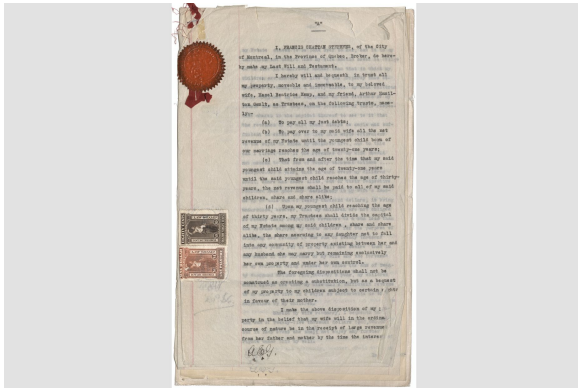 "A"
I, FRANCIS CHATTAN STEPHENS, of the City
of Montreal, in the Province of Quebec, Broker, do here-
by make my Last Will and Testament.
I hereby will and bequeath in trust all
my property, moveable and immoveable, to my beloved
wife, Hazel Beatrice Kemp, and my friend, Arthur Hamil-
ton Gault, as Trustees, on the following trusts, name-
ly:
(a) To pay all my just debts;
(b) To pay over to my said wife all the net
revenue of my Estate until the youngest child born of
our marriage reaches the age of twenty-one years;
(c) That from and after the time that my said
youngest child attains the age of twenty-one years
until the said youngest child reaches the age of thirty-
years, the net revenue shall be paid to all of my said
children, share and share alike.
(d) Upon my youngest child reaching the age
of thirty years, my Trustees shall divide the capital
of my Estate among my said children, share and share
alike, the share accruing to any daughter not to fall
into any community of property existing between her and
any husband she may marry but remaining exclusively
her own property and under her own control.
The foregoing dispositions shall not be
construed as creating a substitution, but as a bequest
of my property to my children subject to certain
in favour of their mother.
I make the above disposition of my
perty in the belief that my wife will in the ordina
course of nature be in the receipt of large revenue
from her father and mother by the time the interes